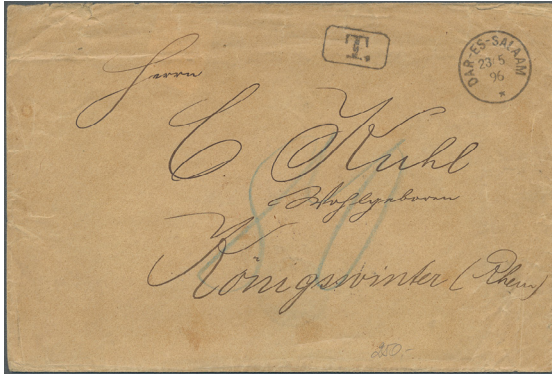 T.
DAR-ES-SALAAM
23/5
96
*
Herrn
C Kuhl
Wohlgeboren
Königswinter (Rhein)
80
250.-